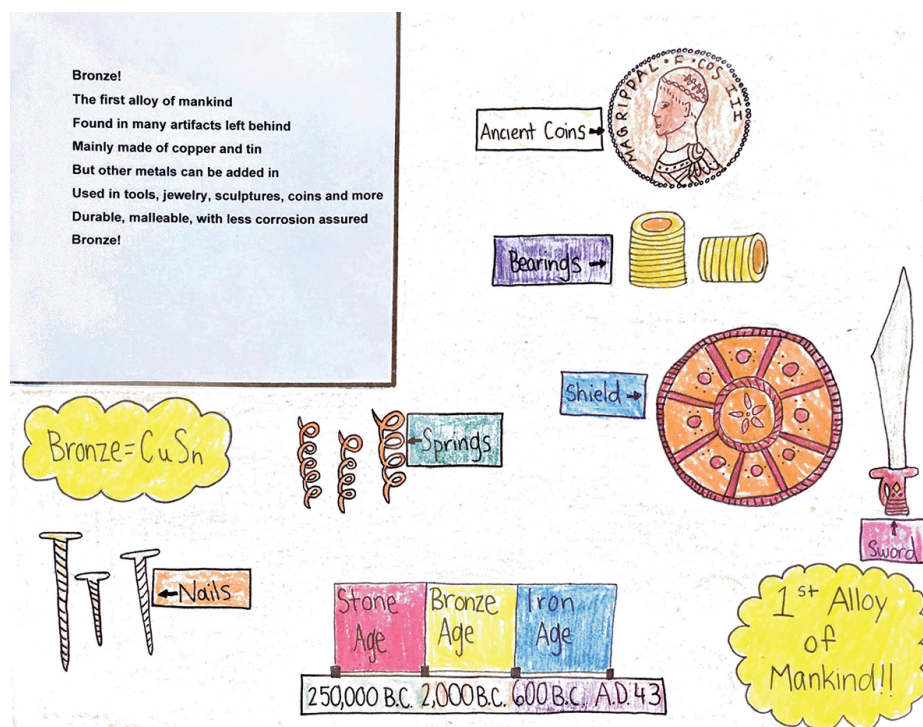 Bronze!
The first alloy of mankind
Found in many artifacts left behind
Mainly made of copper and tin
But other metals can be added in
Used in tools, jewelry, sculptures, coins and more
Durable, malleable, with less corrosion assured
Bronze!
Ancient Coins
MAGRIPPAL · F · COS III
Bearings
Shield
Sword
Bronze=CuSn
Springs
Nails
Stone
Age
Bronze
Age
Iron
Age
250,000 B.C. 2,000 B.C. 600 B.C. A.D. 43
1st Alloy
of
Mankind!!